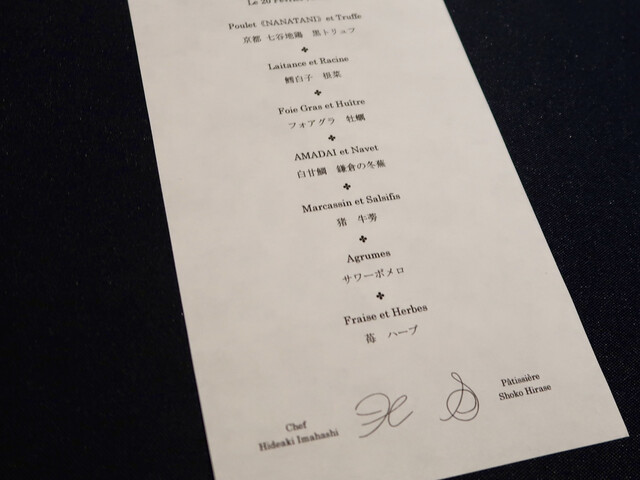 Le 20 Février
Poulet《NANATANI》et Truffe
京都 七谷地鶏 黒トリュフ
Laitance et Racine
鱈白子 根菜
Foie Gras et Huître
フォアグラ 牡蠣
AMADAI et Navet
白甘鯛 鎌倉の冬蕪
Marcassin et Salsifis
猪 牛蒡
Agrumes
サワーポメロ
Fraise et Herbes
苺 ハーブ
Chef
Hideaki Imahashi
Pâtissière
Shoko Hirase